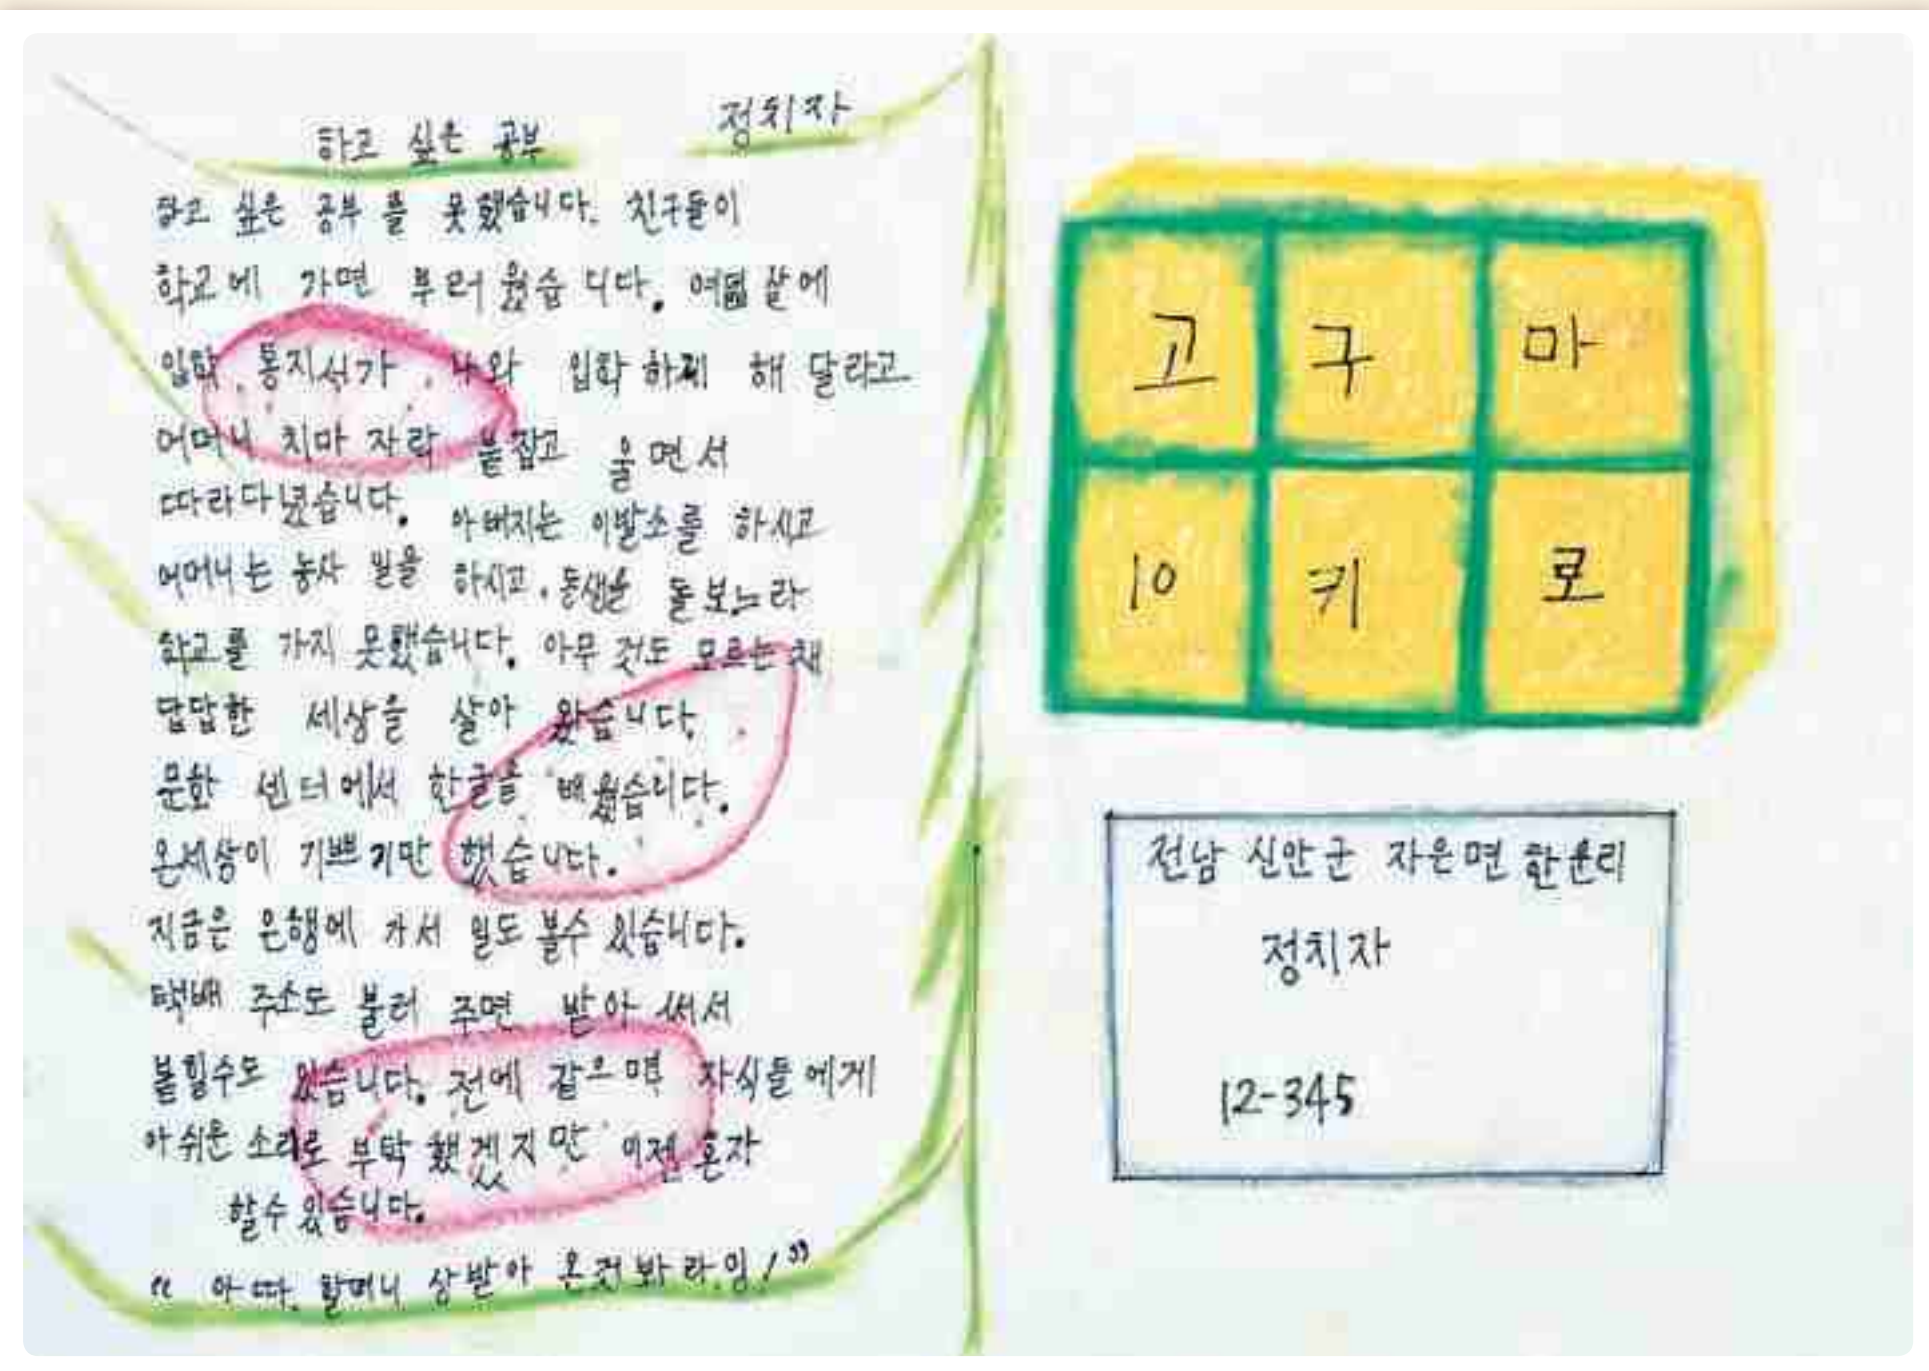 하고 싶은 공부 정치자
하고 싶은 공부를 못했습니다. 친구들이
학교에 가면 부러웠습니다. 여덟살에
입학 통지서가 나와 입학하게 해 달라고
어머니 치마 자락 붙잡고 울면서
따라다녔습니다. 아버지는 이발소를 하시고
어머니는 농사 일을 하시고, 동생을 돌보느라
학교를 가지 못했습니다. 아무 것도 모르는 채
답답한 세상을 살아 왔습니다.
문화 센터에서 한글을 배웠습니다.
온세상이 기쁘기만 했습니다.
지금은 은행에 가서 일도 볼수 있습니다.
택배 주소도 불러 주면 받아 써서
붙힐수도 있습니다. 전에 같으면 자식들에게
아쉬운 소리로 부탁했겠지만 이젠 혼자
할수 있습니다.
“아따, 할머니 상받아 온것봐라잉!”
고 구 마
10 키 로
전남 신안군 자은면 한운리
정치자
12-345